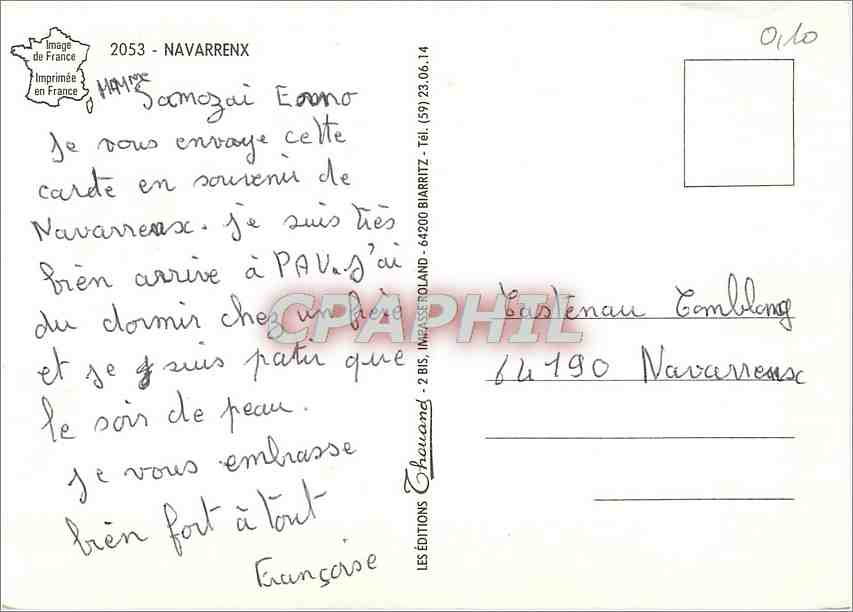 Image
de France
Imprimée
en France
2053 - NAVARRENX
0,10
MMme
Samozai
Je vous envoye cette
carde en souvenir de
Navarrenx. Je suis très
bièn arrive à PAU. J'ai
du dormir chez un frère
et je suis patir que
le soir de peau.
Je vous embrasse
bièn fort à tout
Françoise
LES ÉDITIONS Thouand - 2 BIS, IMPASSE ROLAND - 64200 BIARRITZ - Tél. (59) 23.06.14
CPAPHIL
Castenau Camblong
64190 Navarrenx